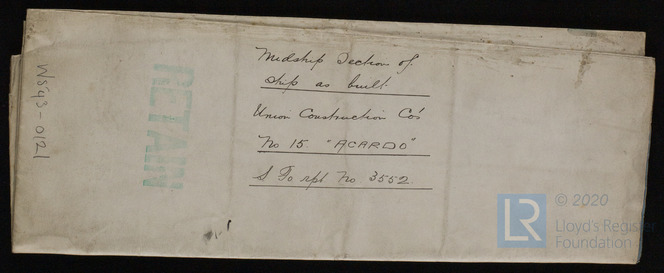 Midship Section of
ship as built.
Union Construction Co's
No 15 "ACARDO"
S Fo rpt No. 3552.
RETAIN
WS43-0121
LR
© 2020
Lloyd's Register
Foundation